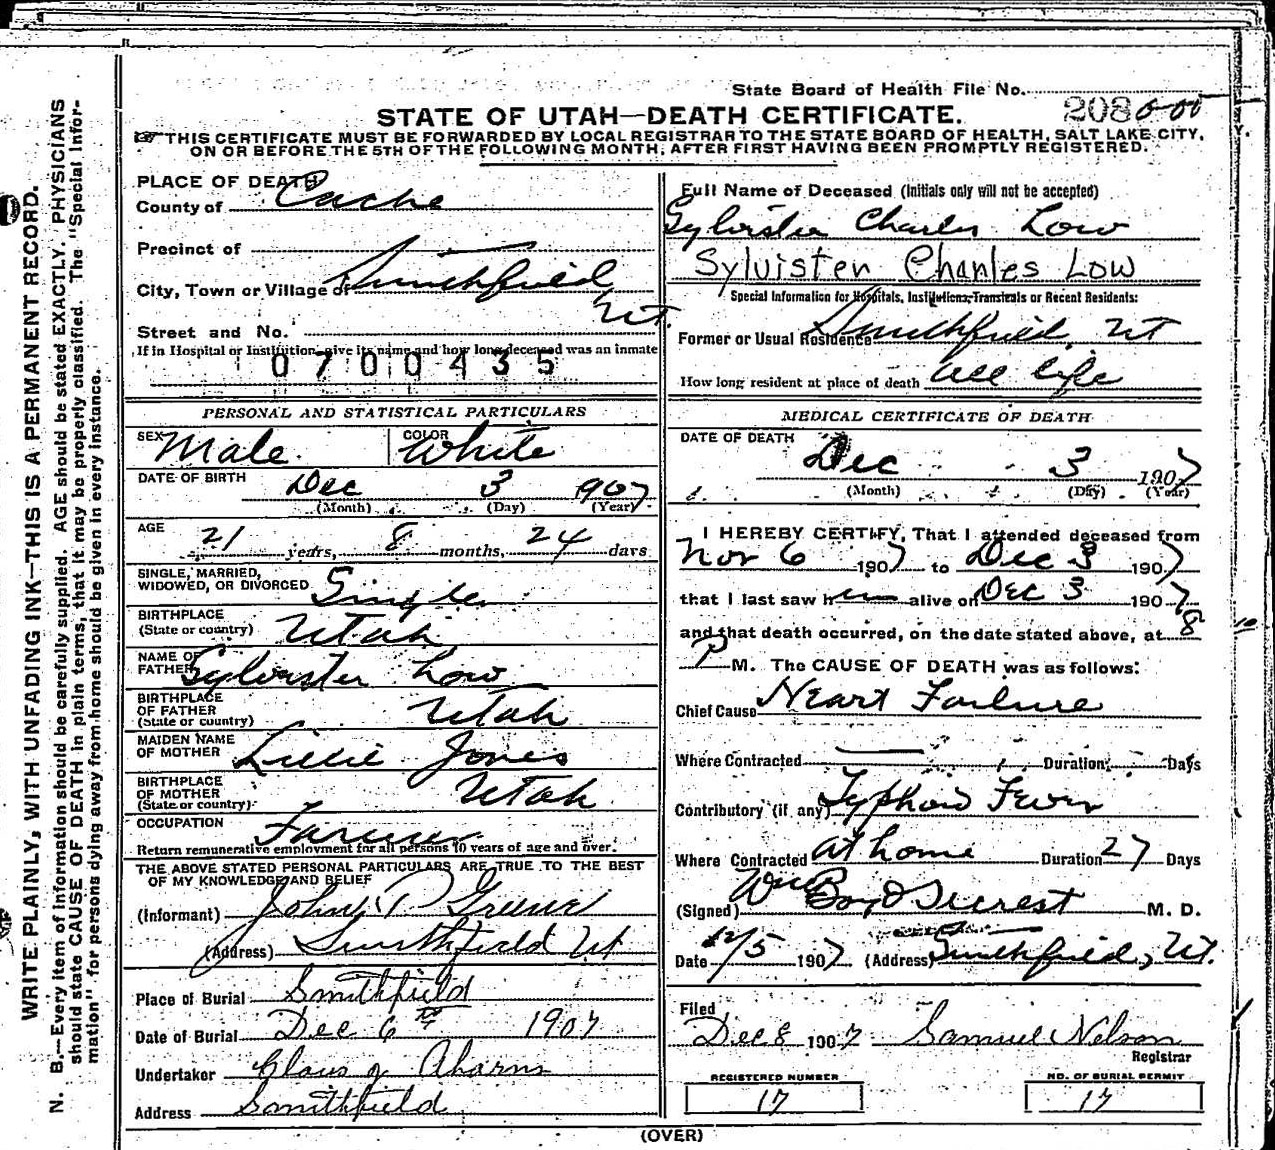 State Board of Health File No.
208
STATE OF UTAH—DEATH CERTIFICATE.
THIS CERTIFICATE MUST BE FORWARDED BY LOCAL REGISTRAR TO THE STATE BOARD OF HEALTH, SALT LAKE CITY,
ON OR BEFORE THE 5TH OF THE FOLLOWING MONTH, AFTER FIRST HAVING BEEN PROMPTLY REGISTERED.
WRITE PLAINLY, WITH UNFADING INK—THIS IS A PERMANENT RECORD.
N. B.—Every item of information should be carefully supplied. AGE should be stated EXACTLY. PHYSICIANS
should state CAUSE OF DEATH in plain terms, that it may be properly classified. The "Special Infor-
mation" for persons dying away from home should be given in every instance.
PLACE OF DEATH
County of Cache
Precinct of
City, Town or Village of Smithfield
Ut.
Street and No.
If in Hospital or Institution give its name and how long deceased was an inmate
0700435
PERSONAL AND STATISTICAL PARTICULARS
SEX Male COLOR White
DATE OF BIRTH Dec 3 1907
(Month) (Day) (Year)
AGE 21 years, 8 months, 24 days
SINGLE, MARRIED,
WIDOWED, OR DIVORCED Single
BIRTHPLACE
(State or country) Utah
NAME OF
FATHER Sylvester Low
BIRTHPLACE
OF FATHER
(State or country) Utah
MAIDEN NAME
OF MOTHER Lillie Jones
BIRTHPLACE
OF MOTHER
(State or country) Utah
OCCUPATION Farmer
Return remunerative employment for all persons 10 years of age and over.
THE ABOVE STATED PERSONAL PARTICULARS ARE TRUE TO THE BEST
OF MY KNOWLEDGE AND BELIEF
(Informant) John P Greene
(Address) Smithfield Ut
Place of Burial Smithfield
Date of Burial Dec 6th 1907
Undertaker Claus J Aharns
Address Smithfield
Full Name of Deceased (Initials only will not be accepted)
Sylvister Charles Low
Sylvister Charles Low
Special Information for Hospitals, Institutions, Transients or Recent Residents:
Former or Usual Residence Smithfield, Ut
How long resident at place of death all life
MEDICAL CERTIFICATE OF DEATH
DATE OF DEATH
Dec 3 1907
(Month) (Day) (Year)
I HEREBY CERTIFY, That I attended deceased from
Nov 6 1907 to Dec 3 1907
that I last saw him alive on Dec 3 1907
and that death occurred, on the date stated above, at 8
P M. The CAUSE OF DEATH was as follows:
Chief Cause Heart Failure
Where Contracted Duration Days
Contributory (if any) Typhoid Fever
Where Contracted at home Duration 27 Days
(Signed) M. D.
Date 12/5 1907 (Address) Smithfield, Ut.
Filed
Dec 8 1907 Samuel Nelson
Registrar
REGISTERED NUMBER
17
NO. OF BURIAL PERMIT
17
(OVER)